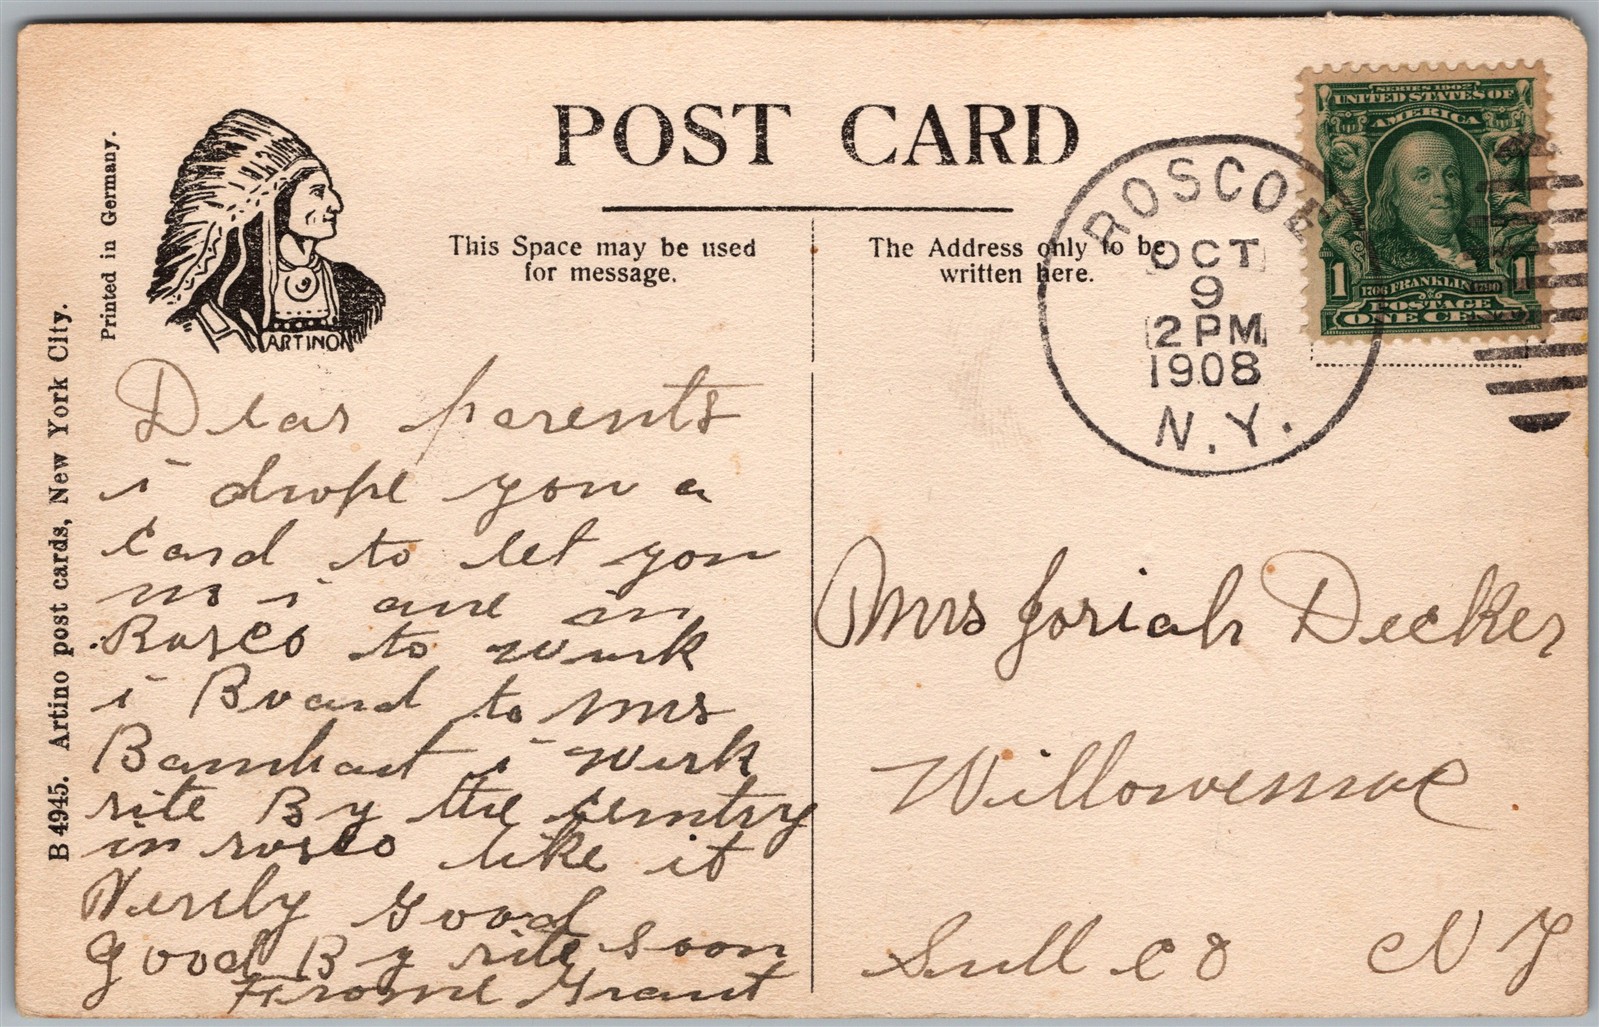 POST CARD
This Space may be used
for message.
The Address only to be
written here.
Printed in Germany.
B 4945. Artino post cards, New York City.
ARTINO
ROSCOE
OCT
9
2 PM
1908
N.Y.
SERIES 1902
UNITED STATES OF
AMERICA
1 1
1706 FRANKLIN 1790
POSTAGE
ONE CENT
Dear parents
i drope you a
Card to let you
no i ame in
Rosco to work
i Board to Mrs
Barnhart i Werk
rite By the semtry
in rosco like it
Verely Good
Good By rite soon
Frome Grant
Mrs Josiah Decker
Willowemoc
Sull co
N Y